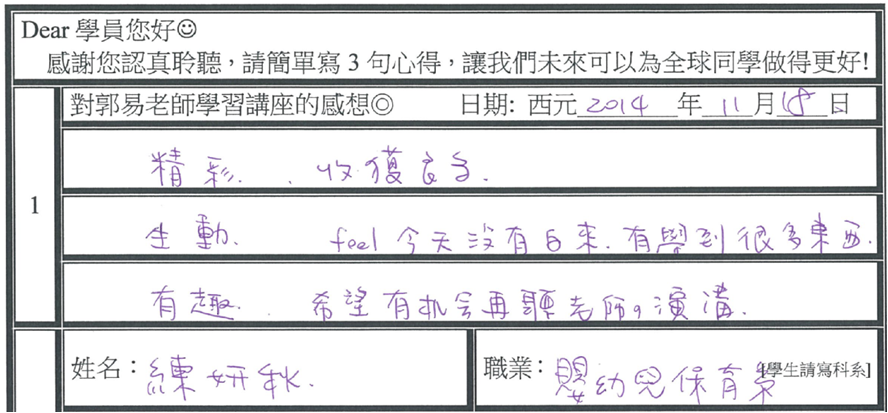 Dear 學員您好☺
感謝您認真聆聽，請簡單寫 3 句心得，讓我們未來可以為全球同學做得更好!
1
對郭易老師學習講座的感想◎ 日期: 西元 2014 年 11 月 18 日
精彩. . 收獲良多.
生動. feel 今天沒有白來. 有學到很多東西.
有趣. 希望有机会再聽老師的演講.
姓名：練妍秋. 職業：嬰幼兒保育系 [學生請寫科系]